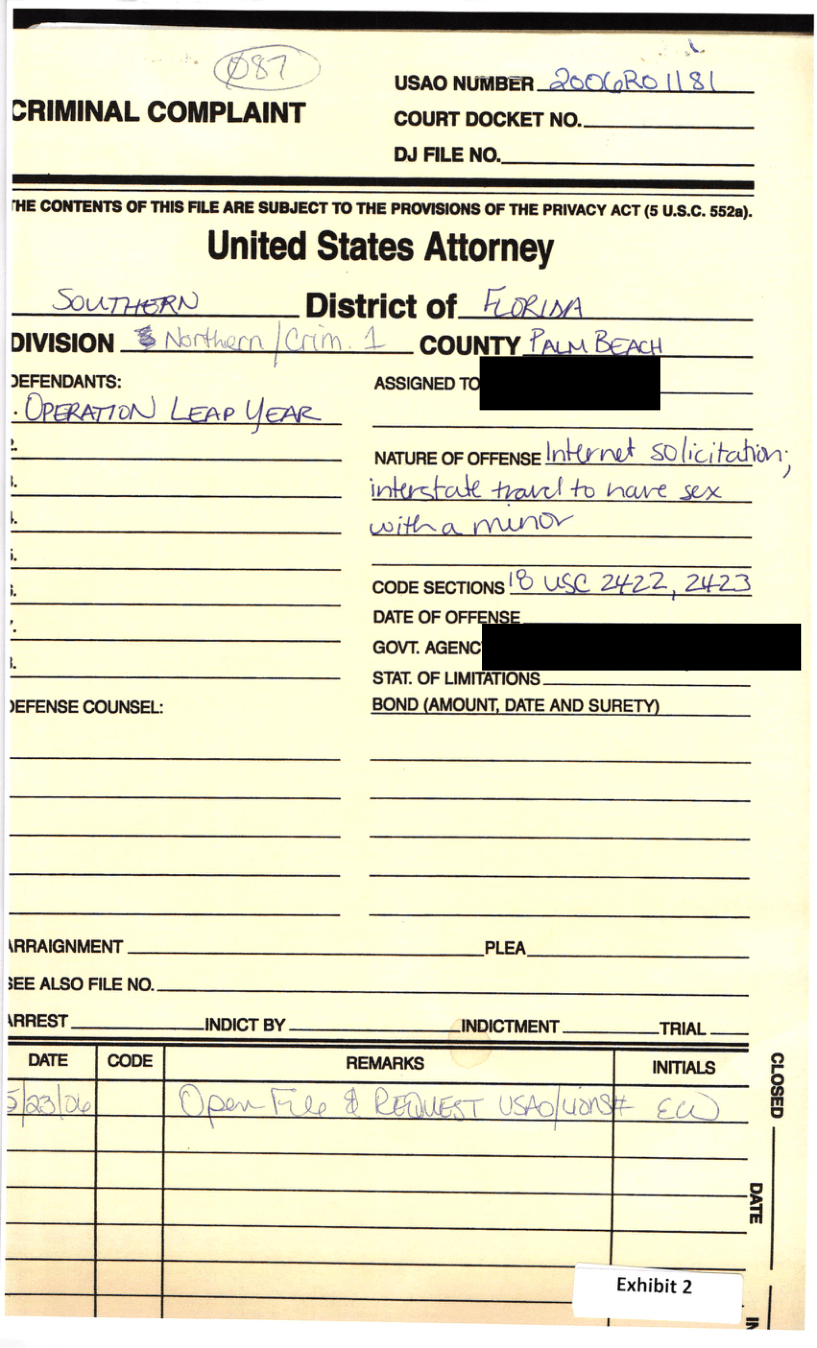 087
USAO NUMBER 2006R01181
CRIMINAL COMPLAINT
COURT DOCKET NO.
DJ FILE NO.
THE CONTENTS OF THIS FILE ARE SUBJECT TO THE PROVISIONS OF THE PRIVACY ACT (5 U.S.C. 552a).
United States Attorney
SOUTHERN District of FLORIDA
DIVISION Northern/Crim. 1 COUNTY PALM BEACH
DEFENDANTS:
ASSIGNED TO
. OPERATION LEAP YEAR
2.
NATURE OF OFFENSE Internet solicitation;
3.
interstate travel to have sex
4.
with a minor
5.
6.
CODE SECTIONS 18 USC 2422, 2423
7.
DATE OF OFFENSE
GOVT. AGENC
8.
STAT. OF LIMITATIONS
DEFENSE COUNSEL:
BOND (AMOUNT, DATE AND SURETY)
ARRAIGNMENT PLEA
SEE ALSO FILE NO.
ARREST INDICT BY INDICTMENT TRIAL
DATE CODE REMARKS INITIALS
5/23/06 Open File & REQUEST USAO/LIONS#
CLOSED
DATE
IN
Exhibit 2